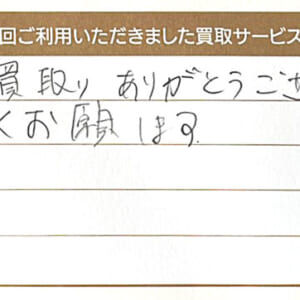 回ご利用いただきました買取サービス
買取り ありがとうござ
くお願します.